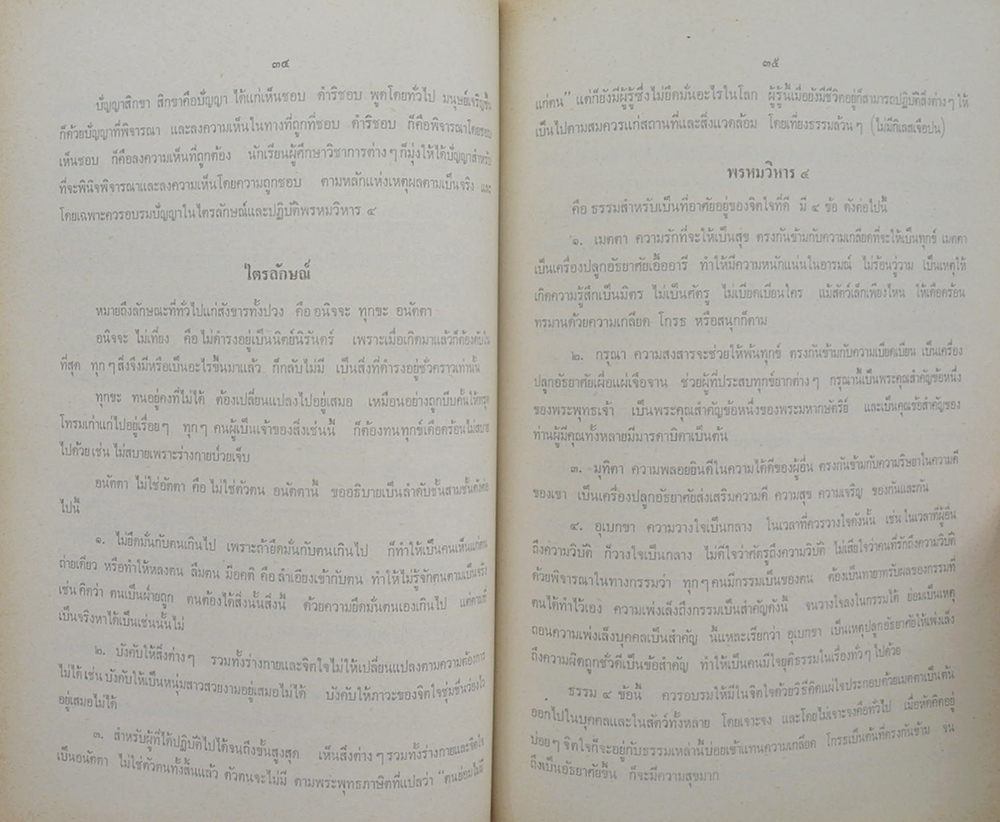 ๓๔
ปัญญาสิกขา สิกขาคือปัญญา ได้แก่เห็นชอบ ดำริชอบ พูดโดยทั่วไป มนุษย์เจริญขึ้น
ก็ด้วยปัญญาที่พิจารณา และลงความเห็นในทางที่ถูกที่ชอบ ดำริชอบ ก็คือพิจารณาโดยชอบ
เห็นชอบ ก็คือลงความเห็นที่ถูกต้อง นักเรียนผู้ศึกษาวิชาการต่างๆ ก็มุ่งให้ได้ปัญญาสำหรับ
ที่จะพินิจพิจารณาและลงความเห็นโดยความถูกชอบ ตามหลักแห่งเหตุผลตามเป็นจริง และ
โดยเฉพาะควรอบรมปัญญาในไตรลักษณ์และปฏิบัติพรหมวิหาร ๔
ไตรลักษณ์
หมายถึงลักษณะที่ทั่วไปแก่สังขารทั้งปวง คือ อนิจจะ ทุกขะ อนัตตา
อนิจจะ ไม่เที่ยง คือ ไม่ดำรงอยู่เป็นนิตย์นิรันดร์ เพราะเมื่อเกิดมาแล้วก็ต้องดับใน
ที่สุด ทุกๆ สิ่งจึงมีหรือเป็นอะไรขึ้นมาแล้ว ก็กลับไม่มี เป็นสิ่งที่ดำรงอยู่ชั่วคราวเท่านั้น
ทุกขะ ทนอยู่คงที่ไม่ได้ ต้องเปลี่ยนแปลงไปอยู่เสมอ เหมือนอย่างถูกบีบคั้นให้ทรุด
โทรมเก่าแก่ไปอยู่เรื่อยๆ ทุกๆ คนผู้เป็นเจ้าของสิ่งเช่นนี้ ก็ต้องทนทุกข์เดือดร้อนไม่สบาย
ไปด้วย เช่น ไม่สบายเพราะร่างกายป่วยเจ็บ
อนัตตา ไม่ใช่อัตตา คือ ไม่ใช่ตัวตน อนัตตานี้ ขออธิบายเป็นลำดับขั้นสามชั้นดังต่อ
ไปนี้
๑. ไม่ยึดมั่นกับตนเกินไป เพราะถ้ายึดมั่นกับตนเกินไป ก็ทำให้เป็นคนเห็นแก่ตน
ถ่ายเดียว หรือทำให้หลงตน ลืมตน มีอคติ คือ ลำเอียงเข้ากับตน ทำให้ไม่รู้จักตนตามเป็นจริง
เช่น คิดว่า ตนเป็นฝ่ายถูก ตนต้องได้สิ่งนั้นสิ่งนี้ ด้วยความยึดมั่นตนเองเกินไป แต่ตามที่
เป็นจริงหาได้เป็นเช่นนั้นไม่
๒. บังคับให้สิ่งต่างๆ รวมทั้งร่างกายและจิตใจไม่ให้เปลี่ยนแปลงตามความต้องการ
ไม่ได้ เช่น บังคับให้เป็นหนุ่มสาวสวยงามอยู่เสมอไม่ได้ บังคับให้ภาวะของจิตใจชุ่มชื่นว่องไว
อยู่เสมอไม่ได้
๓. สำหรับผู้ที่ได้ปฏิบัติไปได้จนถึงขั้นสูงสุด เห็นสิ่งต่างๆ รวมทั้งร่างกายและจิตใจ
เป็นอนัตตา ไม่ใช่ตัวตนทั้งสิ้นแล้ว ตัวตนจะไม่มี ตามพระพุทธภาษิตที่แปลว่า “ตนย่อมไม่มี
๓๕
แก่ตน” แต่ก็ยังมีผู้รู้ซึ่งไม่ยึดมั่นอะไรในโลก ผู้รู้นี้เมื่อยังมีชีวิตอยู่ก็สามารถปฏิบัติสิ่งต่างๆ ให้
เป็นไปตามสมควรแก่สถานที่และสิ่งแวดล้อม โดยเที่ยงธรรมล้วนๆ (ไม่มีกิเลสเจือปน)
พรหมวิหาร ๔
คือ ธรรมสำหรับเป็นที่อาศัยอยู่ของจิตใจที่ดี มี ๔ ข้อ ดังต่อไปนี้
๑. เมตตา ความรักที่จะให้เป็นสุข ตรงกันข้ามกับความเกลียดที่จะให้เป็นทุกข์ เมตตา
เป็นเครื่องปลูกอัธยาศัยเอื้ออารี ทำให้มีความหนักแน่นในอารมณ์ ไม่ร้อนวู่วาม เป็นเหตุให้
เกิดความรู้สึกเป็นมิตร ไม่เป็นศัตรู ไม่เบียดเบียนใคร แม้สัตว์เล็กเพียงไหน ให้เดือดร้อน
ทรมานด้วยความเกลียด โกรธ หรือสนุกก็ตาม
๒. กรุณา ความสงสารจะช่วยให้พ้นทุกข์ ตรงกันข้ามกับความเบียดเบียน เป็นเครื่อง
ปลูกอัธยาศัยเผื่อแผ่เจือจาน ช่วยผู้ที่ประสบทุกข์ยากต่างๆ กรุณานี้เป็นพระคุณสำคัญข้อหนึ่ง
ของพระพุทธเจ้า เป็นพระคุณสำคัญข้อหนึ่งของพระมหากษัตริย์ และเป็นคุณข้อสำคัญของ
ท่านผู้มีคุณทั้งหลายมีมารดาบิดาเป็นต้น
๓. มุทิตา ความพลอยยินดีในความได้ดีของผู้อื่น ตรงกันข้ามกับความริษยาในความดี
ของเขา เป็นเครื่องปลูกอัธยาศัยส่งเสริมความดี ความสุข ความเจริญ ของกันและกัน
๔. อุเบกขา ความวางใจเป็นกลาง ในเวลาที่ควรวางใจดังนั้น เช่น ในเวลาที่ผู้อื่น
ถึงความวิบัติ ก็วางใจเป็นกลาง ไม่ดีใจว่าศัตรูถึงความวิบัติ ไม่เสียใจว่าคนที่รักถึงความวิบัติ
ด้วยพิจารณาในทางกรรมว่า ทุกๆ คนมีกรรมเป็นของตน ต้องเป็นทายาทรับผลของกรรมที่
ตนได้ทำไว้เอง ความเพ่งเล็งถึงกรรมเป็นสำคัญดังนี้ จนวางใจลงในกรรมได้ ย่อมเป็นเหตุ
ถอนความเพ่งเล็งบุคคลเป็นสำคัญ นี้แหละเรียกว่า อุเบกขา เป็นเหตุปลูกอัธยาศัยให้เพ่งเล็ง
ถึงความผิดถูกชั่วดีเป็นข้อสำคัญ ทำให้เป็นคนมีใจยุติธรรมในเรื่องทั่วๆ ไปด้วย
ธรรม ๔ ข้อนี้ ควรอบรมให้มีในจิตใจด้วยวิธีคิดแผ่ใจประกอบด้วยเมตตาเป็นต้น
ออกไปในบุคคลและในสัตว์ทั้งหลาย โดยเจาะจง และโดยไม่เจาะจงคือทั่วไป เมื่อหัดคิดอยู่
บ่อยๆ จิตใจก็จะอยู่กับธรรมเหล่านี้บ่อยเข้าแทนความเกลียด โกรธเป็นต้นที่ตรงกันข้าม จน
ถึงเป็นอัธยาศัยขึ้น ก็จะมีความสุขมาก